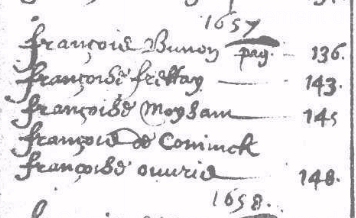 1657
françois Bunon pag. 136.
françoise frettay 143.
françoise Moysam 145
françois de Coninck
françoise ouvrie 148.
1658.